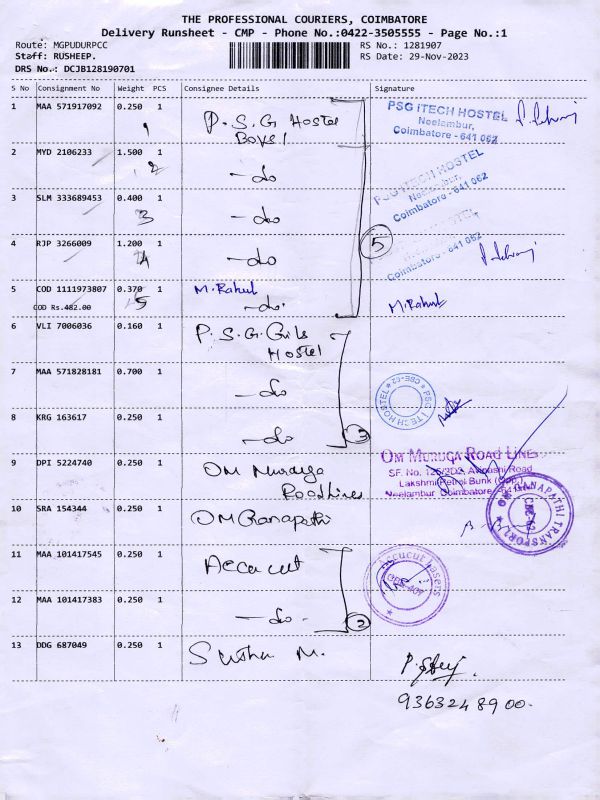 THE PROFESSIONAL COURIERS, COIMBATORE
Delivery Runsheet - CMP - Phone No.:0422-3505555 - Page No.:1
Route: MGPUDURPCC RS No.: 1281907
Staff: RUSHEEP. RS Date: 29-Nov-2023
DRS No.: DCJB128190701
S No Consignment No Weight PCS Consignee Details Signature
1 MAA 571917092 0.250 1 P.S.G Hostel
Boys 1
PSG iTECH HOSTEL
Neelambur,
Coimbatore - 641 062
1
2 MYD 2106233 1.500 1 - do
2
PSG iTECH HOSTEL
Neelambur,
Coimbatore - 641 062
3 SLM 333689453 0.400 1 - do
3
4 RJP 3266009 1.200 1 - do
4
Coimbatore - 641 062
5
5 COD 1111973807 0.370 1 M. Rahul M. Rahul
COD Rs.482.00 5 - do.
6 VLI 7006036 0.160 1 P.S.G. Girls
Hostel
7 MAA 571828181 0.700 1 - do
PSG iTECH HOSTEL CBE-62
8 KRG 163617 0.250 1 - do
3
9 DPI 5224740 0.250 1 OM Muruga
Roadlines
OM MURUGA ROAD LINES
Lakshmi Petrol Bank (Opp)
Neelambur Coimbatore
10 SRA 154344 0.250 1 OM Ganapathi
GANAPATHI TRANSPORT
11 MAA 101417545 0.250 1 Accu cut
Accucut Lasers
12 MAA 101417383 0.250 1 - do.
2
13 DDG 687049 0.250 1 Sutha M.
9363248900.